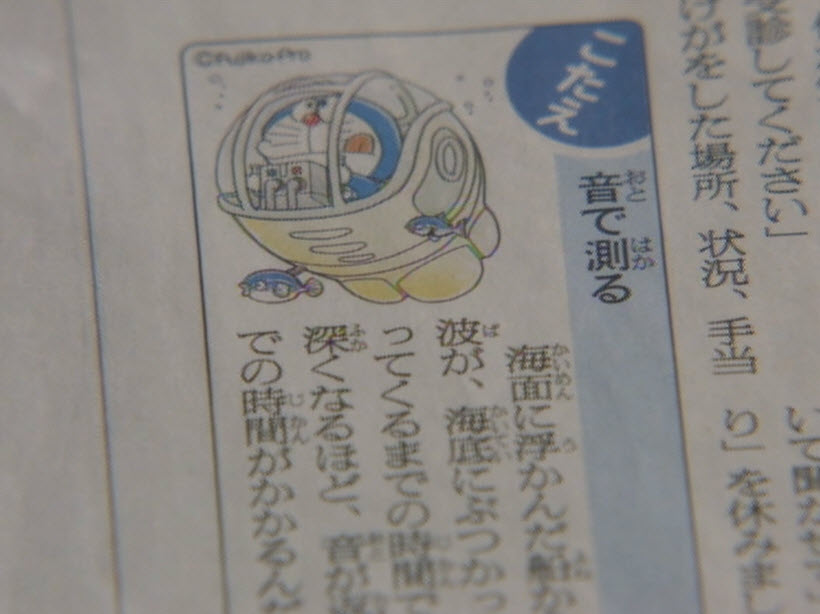 受診してください」
けがをした場所、状況、手当
り」を休みま
©Fujiko-Pro
こたえ
音で測る
海面に浮かんだ船か
波が、海底にぶつかっ
ってくるまでの時間で
深くなるほど、音が
での時間がかかるんだ